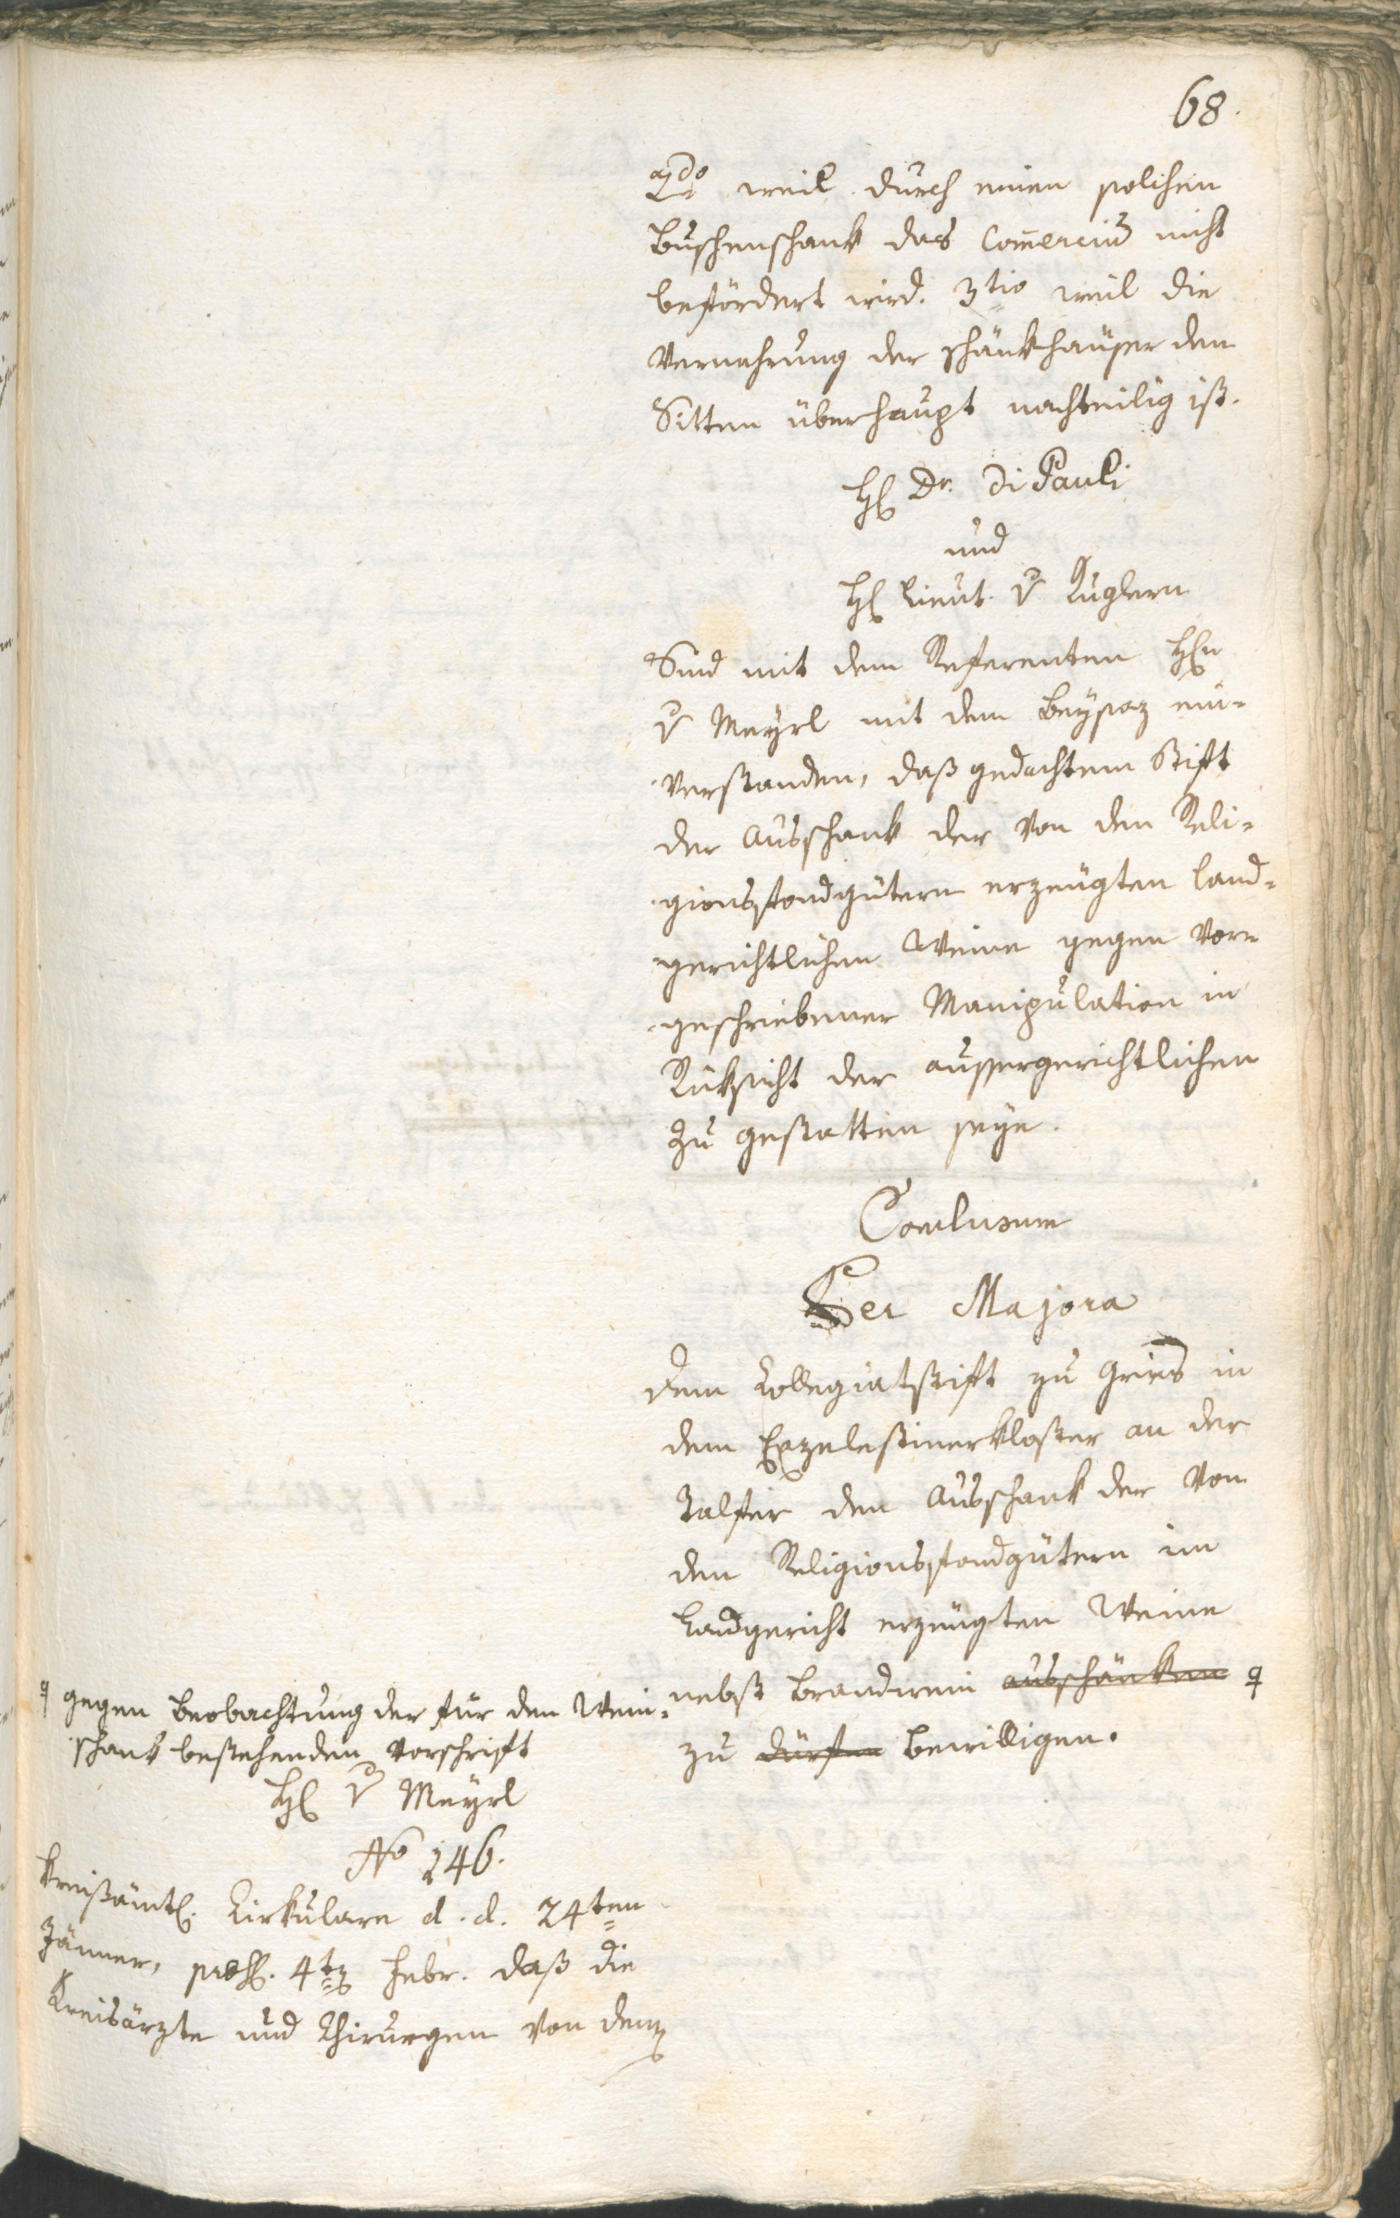 68.
2do weil durch einen solchen
Buschenschank das Com̅ercium nicht
befördert wird. 3tio weil die
Vermehrung der schänkhäuser den
Sitten überhaupt nachteilig ist.
H. Dr. Di Pauli
und
H. Lieut. v Kuglern
Sind mit dem Referenten Hrn
v Mayrl mit dem Beysaz ein-
verstanden, daß gedachtem Stift
der Ausschank der von den Reli-
gionsfondgütern erzeugten land-
gerichtlichen Weine gegen vor-
geschriebener Manipulation in
Rüksicht der aussergerichtlichen
zu gestatten seye.
Conclusum
Per Majora
Dem Collegiatstift zu Gries in
dem Exzelestinerkloster an der
Talfer den Ausschank der von
den Religionsfondgütern im
Landgericht erzeugten Weine
nebst Brandwein ausschänken
zu dürfen bewilligen.
gegen Beobachtung der für den Wein-
schank bestehenden Vorschrift
H. v Mayrl
No 246.
Kreisämtl. Cirkulare d. d. 24ten
Jänner, præs. 4t Febr. daß die
Kreisärzte und Chirurgen von den